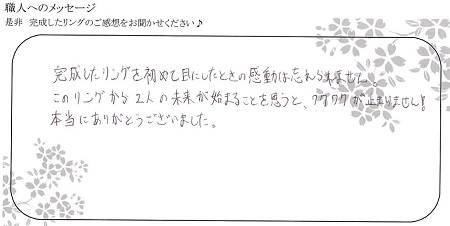 職人へのメッセージ
是非　完成したリングのご感想をお聞かせください♪
完成したリングを初めて目にしたときの感動は忘れられません。
このリングから2人の未来が始まることを思うと、ワクワクが止まりません!
本当にありがとうございました。